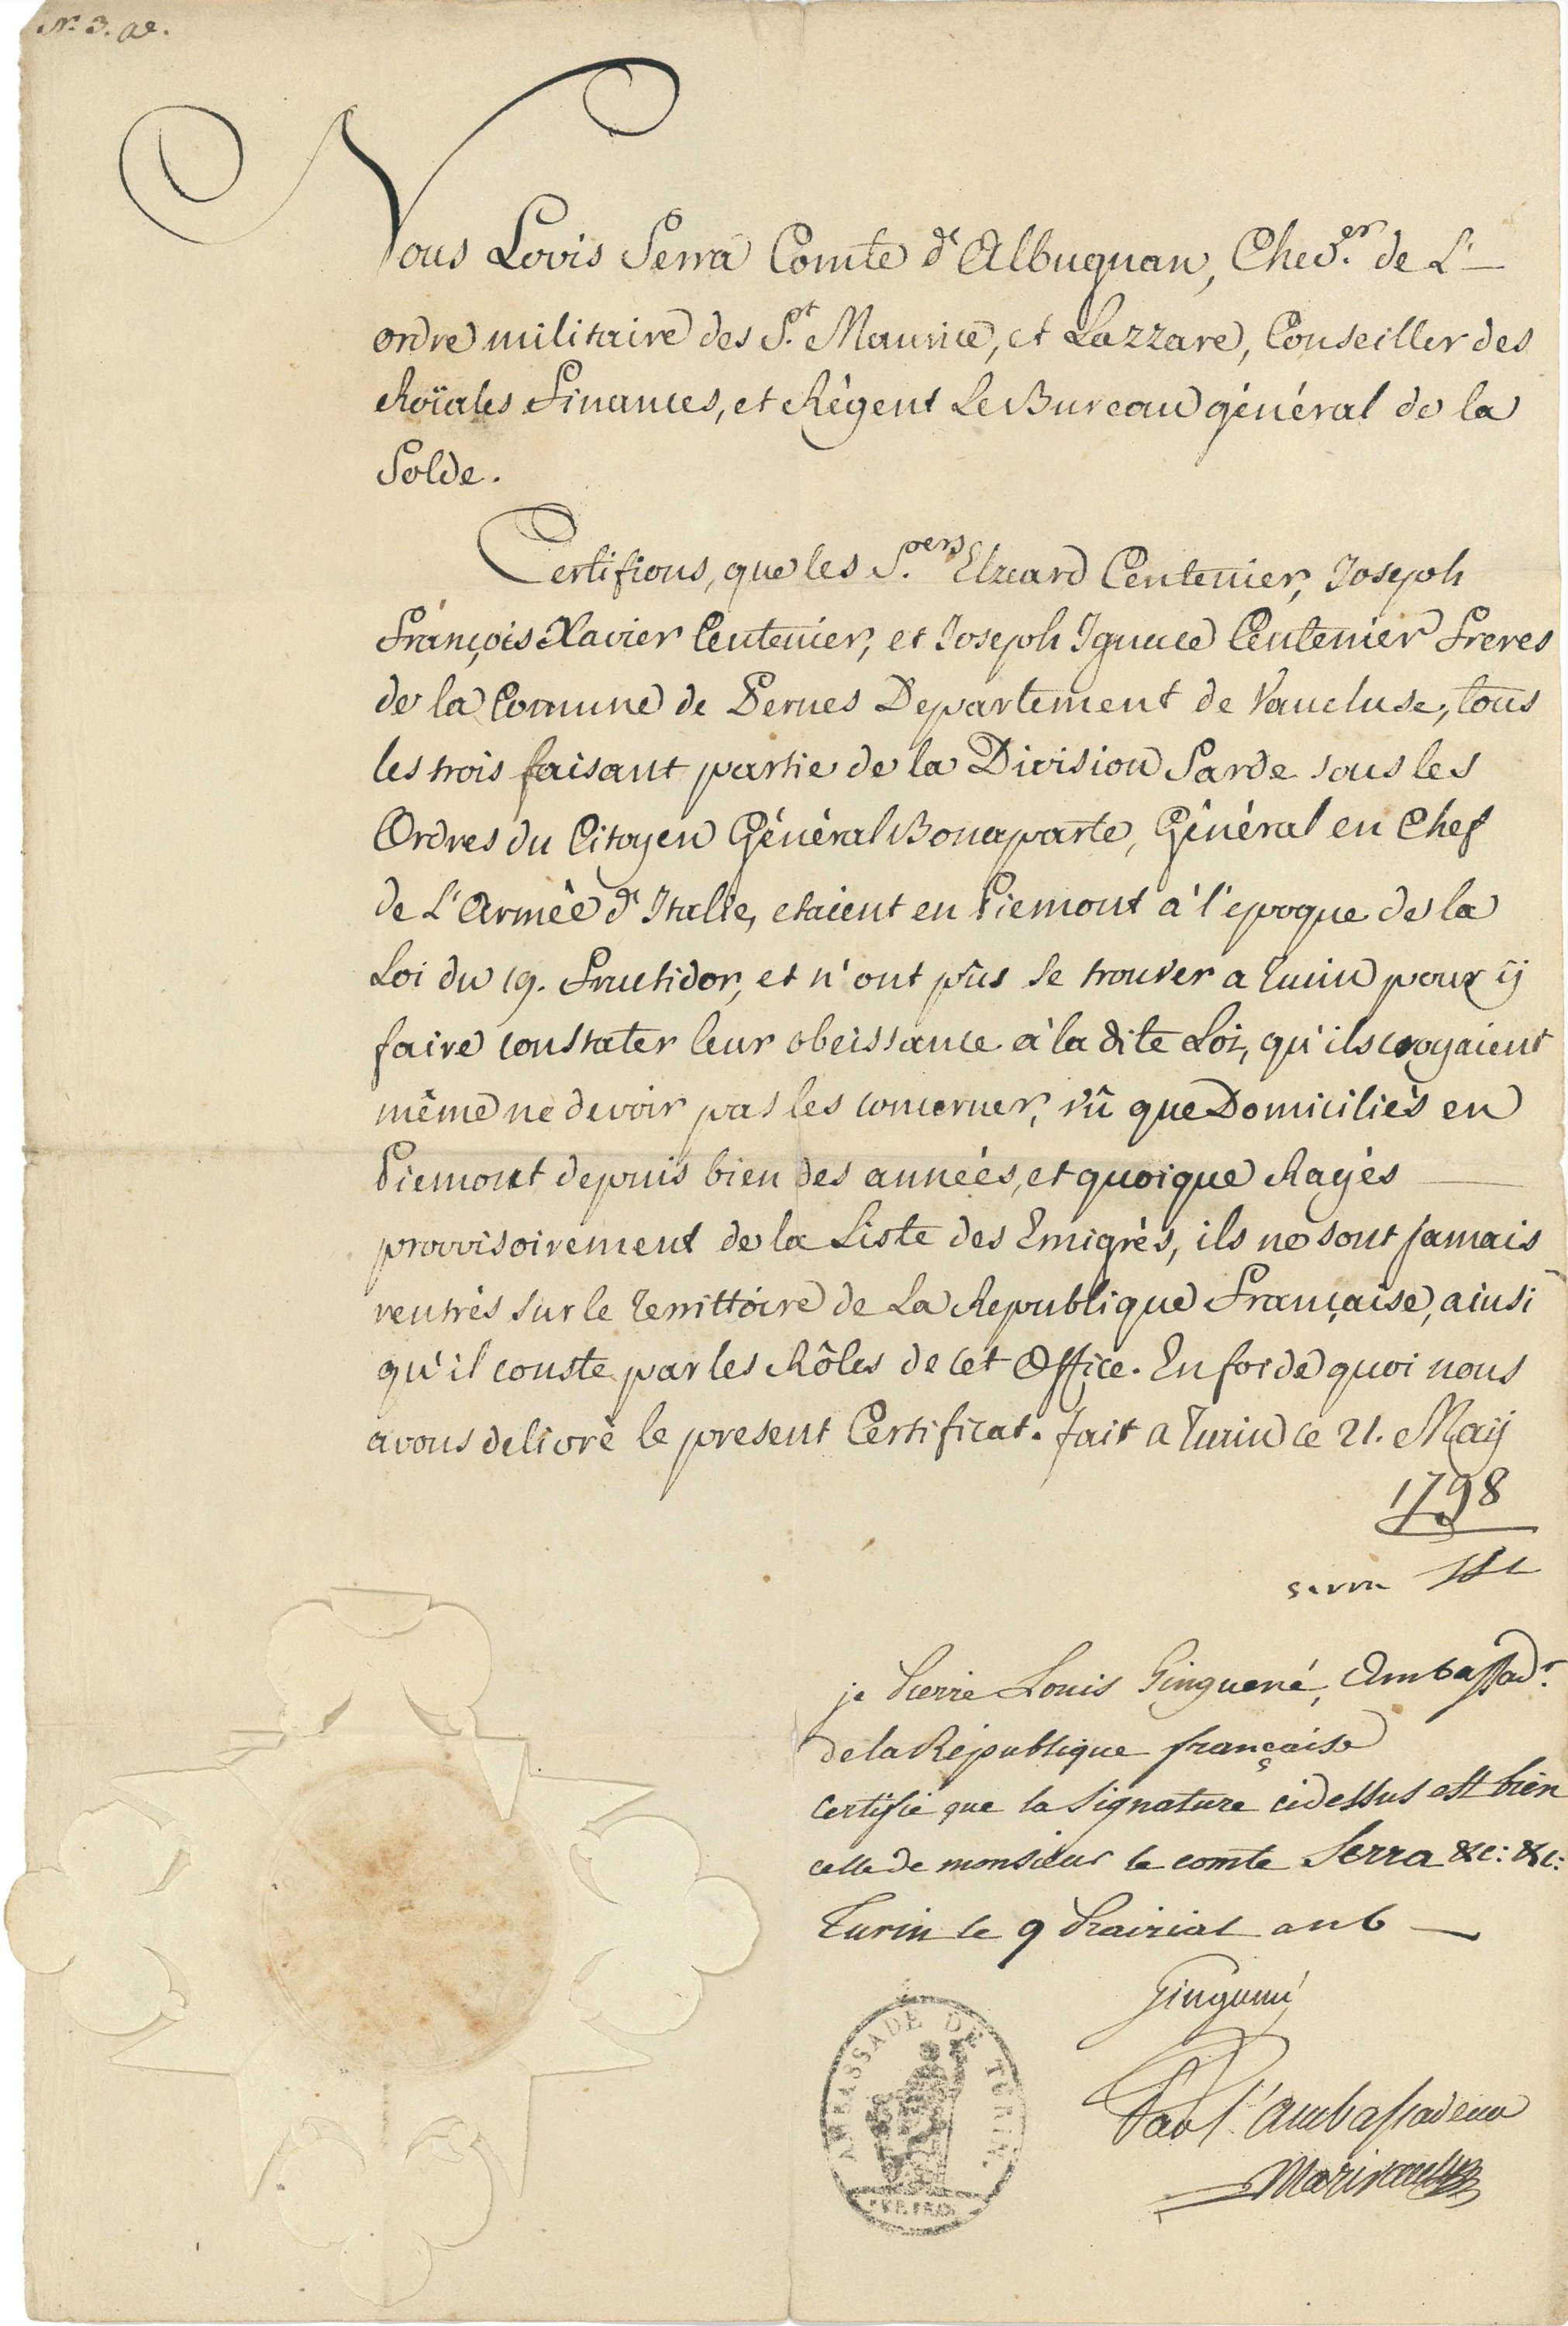 N.º 3. ae.
Nous Louis Serra Comte d'Albugnan, Chev.er de L'—
ordre militaire des S.t Maurice, et Lazzare, Conseiller des
Roïales Finances, et Régent Le Bureau général de la
Solde.
Certifions, que les S.ers Elzeard Centenier, Joseph
François Xavier Centenier, et Joseph Ignace Centenier Freres
de la Comune de Pernes Departement de Vaucluse, tous
les trois faisant partie de la Division Sarde sous les
Ordres du Citoyen Général Bonaparte, Général en Chef
de L'Armêe d'Italie, etaient en Piemont à l'epoque de la
Loi du 19. Fructidor, et n'ont pûs se trouver a Turin pour ÿ
faire constater leur obeissance à la dite Loi, qu'ils croyaient
même ne devoir pas les concerner, vû que Domiciliés en
Piemont depuis bien des années, et quoique Rayés —
provvisoirement de la Liste des Emigrés, ils ne sont jamais
rentrés sur le Territtoire de La Republique Française, ainsi
qu'il conste par les Rôles de cet Office. En foi de quoi nous
avons delivré le present Certificat. fait a Turin ce 21. Maÿ
1798
Serra
je Pierre Louis Ginguené, Ambassad.r
de la République française
certifie que la signature cidessus est bien
celle de monsieur le comte Serra &c: &c:
Turin le 9 Prairial an 6 —
Ginguené
AMBASSADE DE TURIN.
Par l'ambassadeur